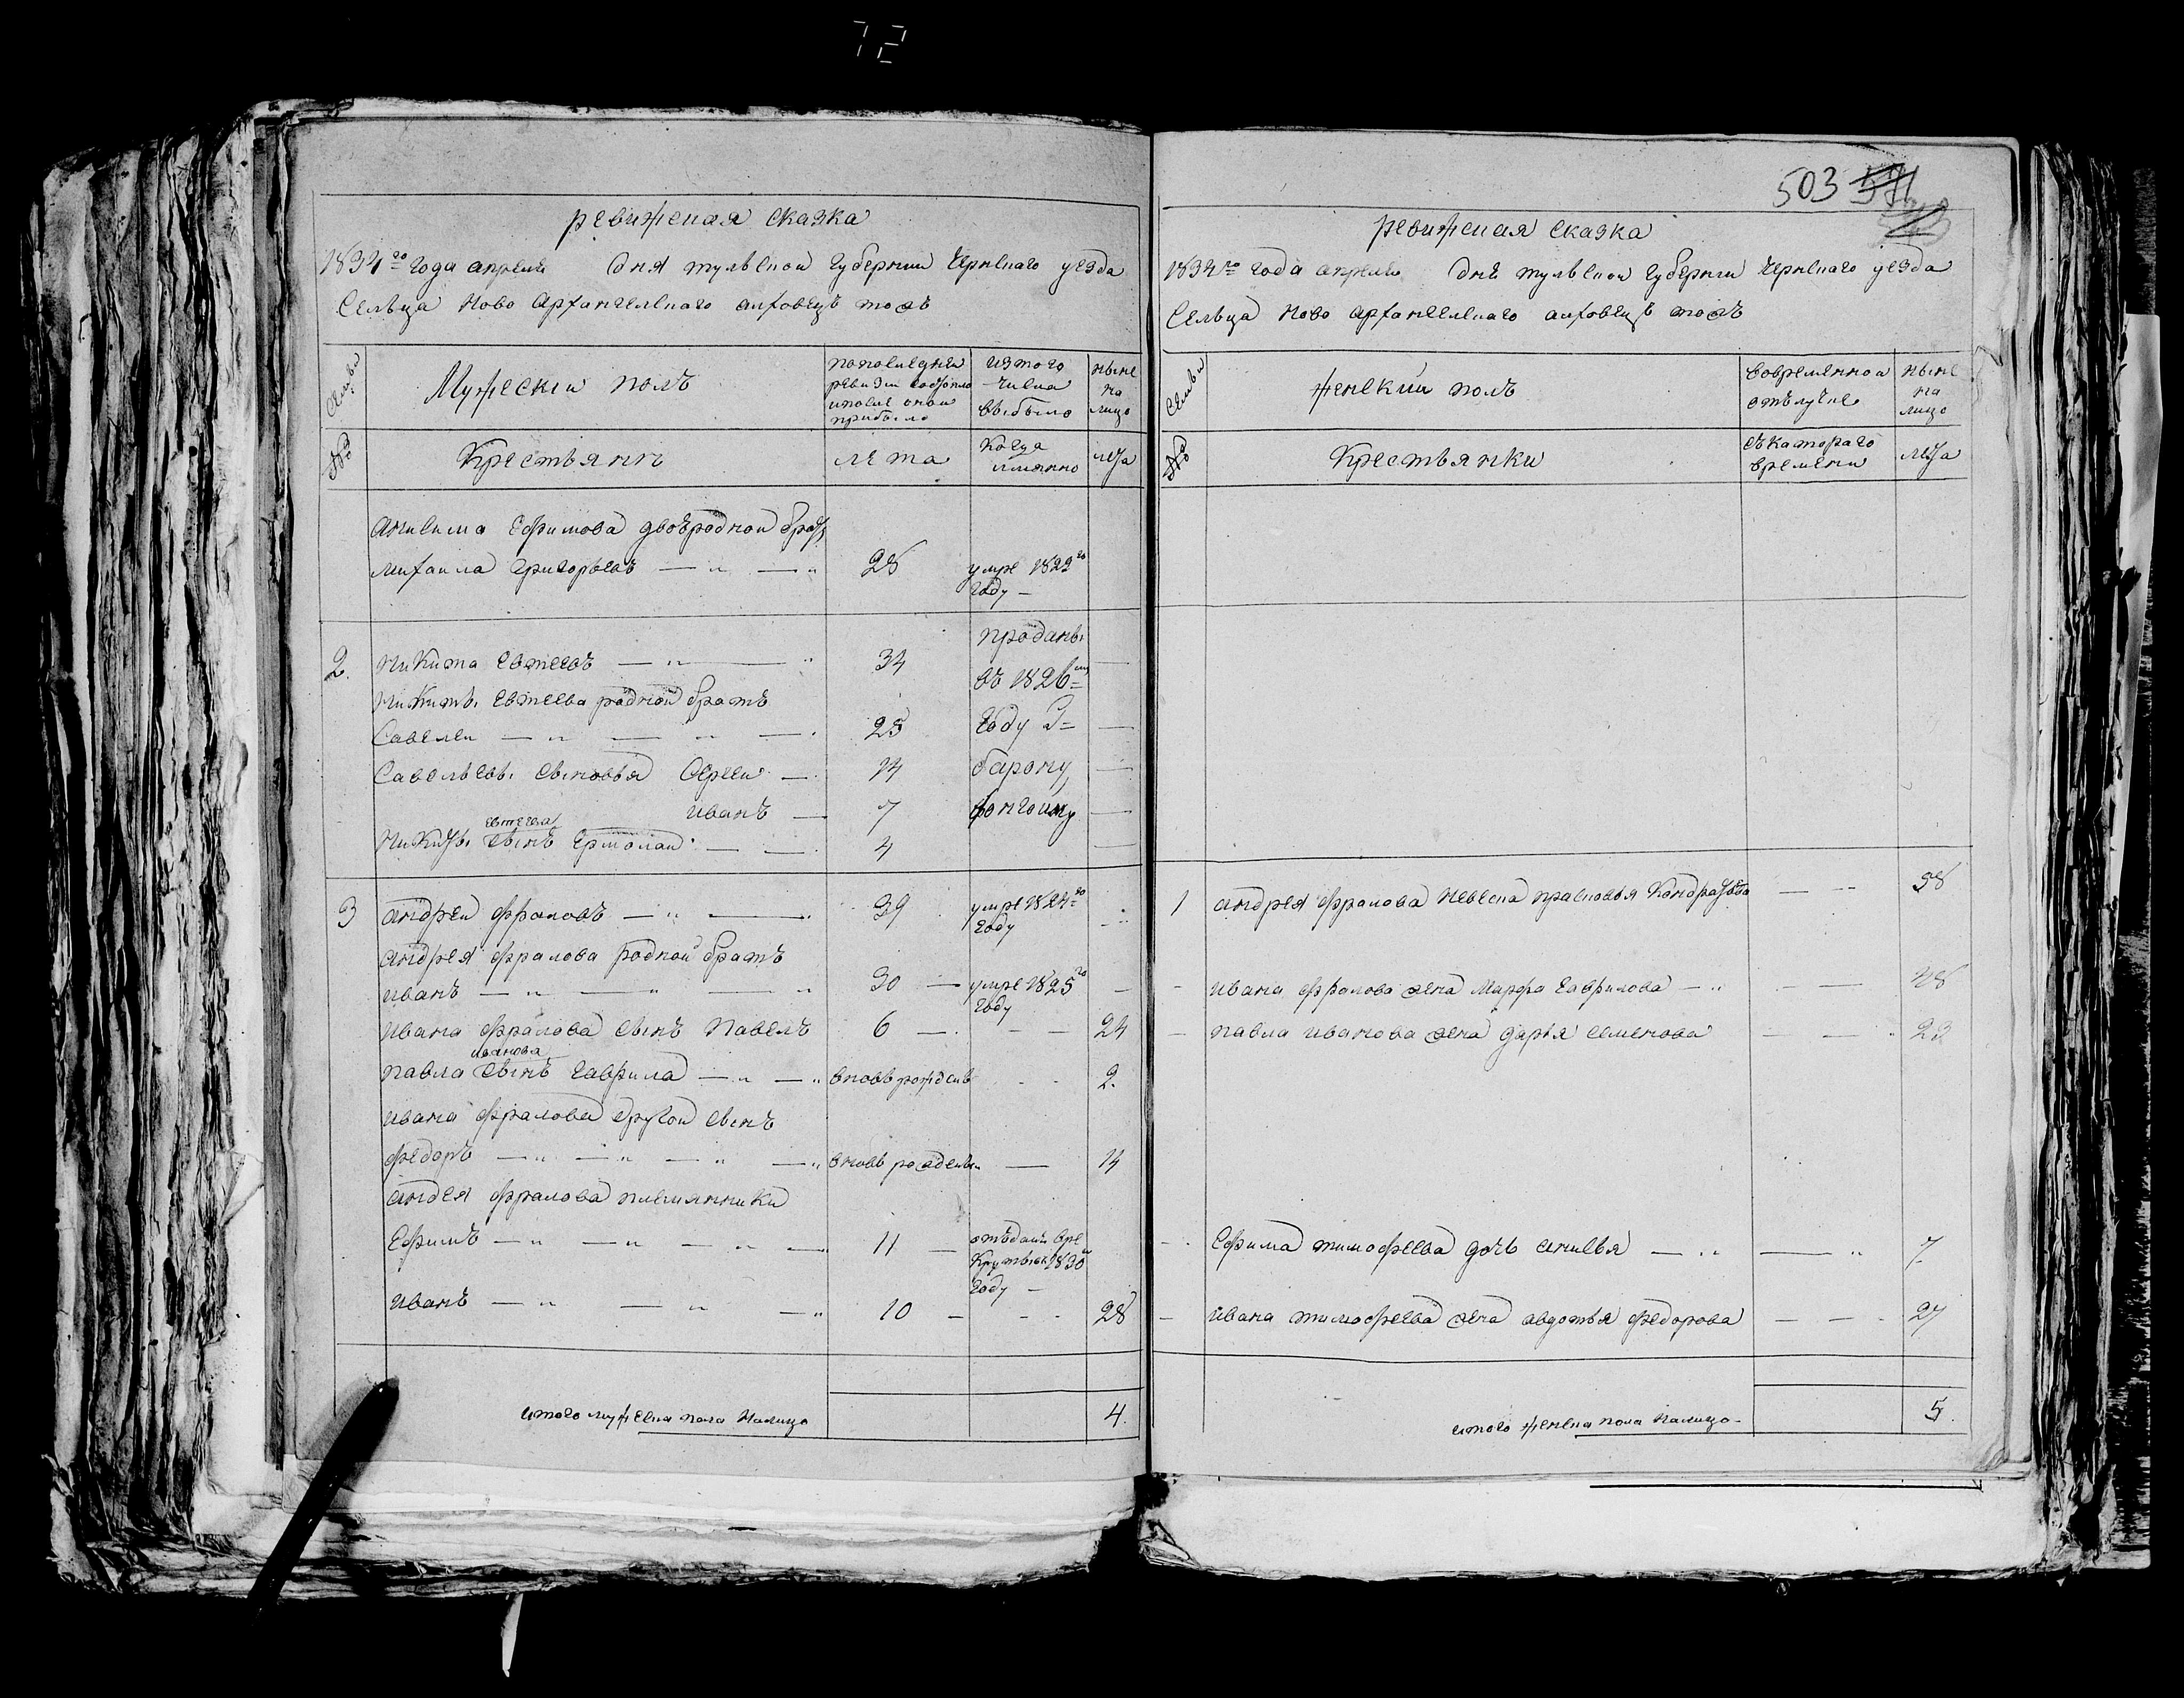 72
ревижская сказка
1834го года апреля дня тульской губернии Чернскаго уезда
Сельца Ново Архангельскаго алховецъ тожъ
Семьи
Мужескій полъ
попоследней
ревизіи состояло
и после оной
прибыло
изтого
числа
выбыло
ныне
на
лицо
№
Крестьяннъ
лета
когда
имянно
лета
Анисима Ефимова двоюродной братъ
михаила григорьевъ
25
умре 1822го
году
2.
Никита Евтеевъ
34
проданы
въ 1826мъ
Никиты Евтеева родной братъ
Савелеи
25
году Г=
Савельевы сыновья Сергеи
14
барону
иванъ
7
фонгоину
евтеева
Никиты сынъ Ермолаи
4
3
андреи фраловъ
39
умре 1824го
году
андрея фралова родной братъ
иванъ
30
умре 1825го
году
ивана фралова сынъ павелъ
6
24
иванова
павла сынъ гаврила
вновь рожденъ
2.
ивана фралова другой сынъ
федоръ
вновь рожденъ
14
андея фралова племянники
Ефимъ
11
отъданъ вре
круты въ 1830м
году
иванъ
10
28
итого мужеска пола налицо
4.
503 571
ревижская сказка
1834го года апреля дня тульской губернии чернскаго уезда
Сельца Ново архангельскаго алховецъ тожъ
Семьи
женский полъ
вовременной
отълучке
ныне
на
лицо
№
Крестьянки
съкатораго
времени
лета
1
андрея фралова невеска прасковья Кондратьева
38
ивана фралова жена марфа гаврилова
48
павла иванова жена дарья семенова
23
Ефима тимофеева дочь анисья
7
ивана тимофеева жена авдотья федорова
27
итого женска пола налицо
5.